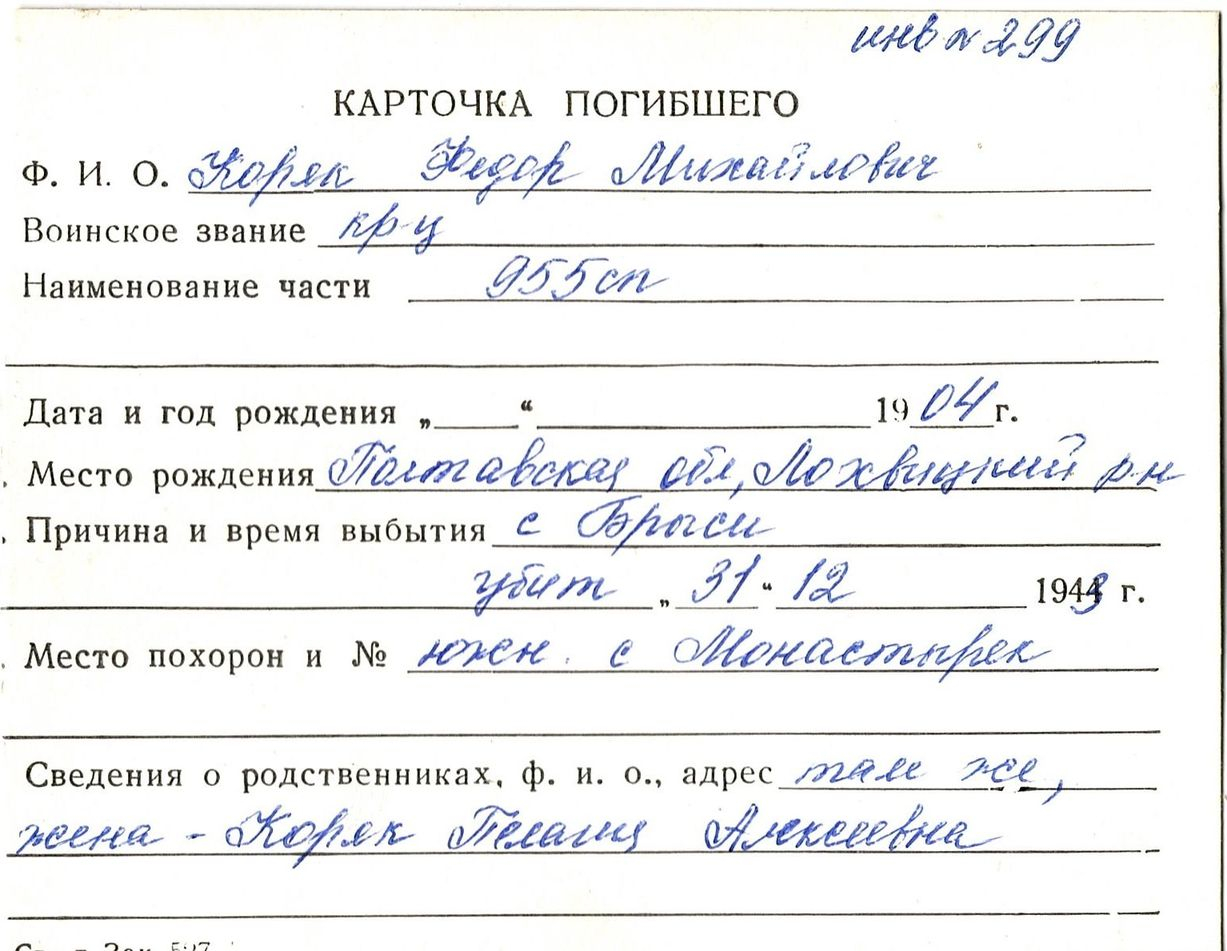 инв № 299
КАРТОЧКА ПОГИБШЕГО
Ф. И. О. Коряк Федор Михайлович
Воинское звание кр-ц
Наименование части 955сп
Дата и год рождения „ “ 1904 г.
Место рождения Полтавская обл, Лохвицкий р-н
Причина и время выбытия с Брыси
убит „ 31 “ 12 1943 г.
Место похорон и № южн. с Монастырек
Сведения о родственниках, ф. и. о., адрес там же,
жена - Коряк Пелагия Алексеевна